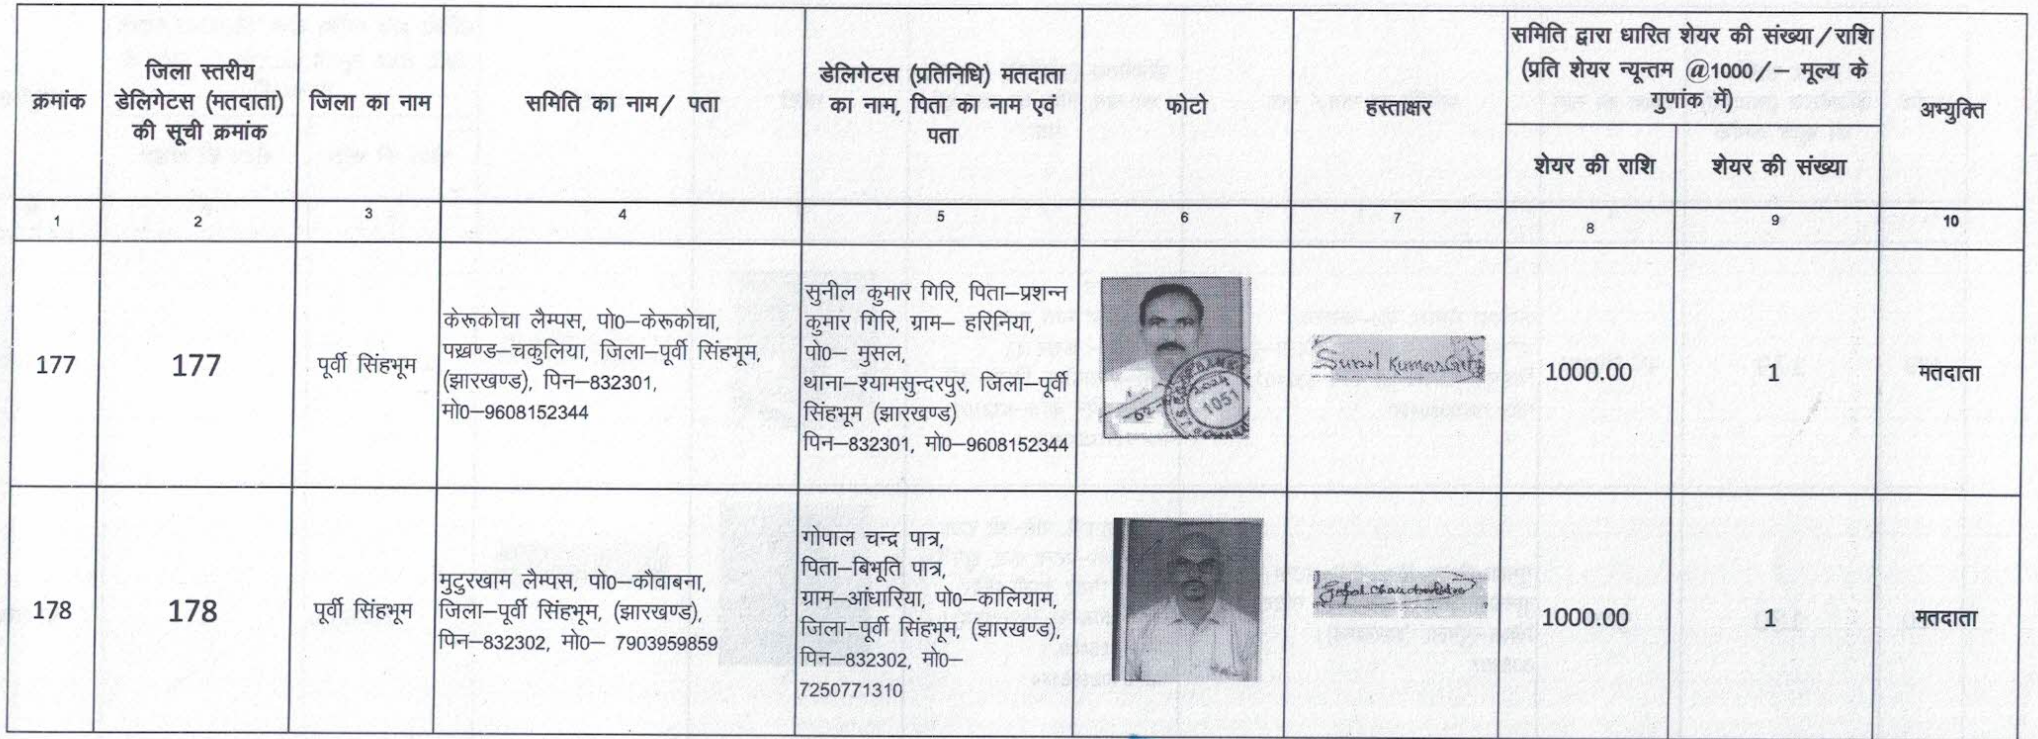 क्रमांक
जिला स्तरीय
डेलिगेटस (मतदाता)
की सूची क्रमांक
जिला का नाम
समिति का नाम/ पता
डेलिगेटस (प्रतिनिधि) मतदाता
का नाम, पिता का नाम एवं
पता
फोटो
हस्ताक्षर
समिति द्वारा धारित शेयर की संख्या/राशि
(प्रति शेयर न्यून्तम @1000/– मूल्य के
गुणांक में)
शेयर की राशि
शेयर की संख्या
अभ्युक्ति
1
2
3
4
5
6
7
8
9
10
177
177
पूर्वी सिंहभूम
केरूकोचा लैम्पस, पो0–केरूकोचा,
पख्रण्ड–चकुलिया, जिला–पूर्वी सिंहभूम,
(झारखण्ड), पिन–832301,
मो0–9608152344
सुनील कुमार गिरि, पिता–प्रशन्न
कुमार गिरि, ग्राम– हरिनिया,
पो0– मुसल,
थाना–श्यामसुन्दरपुर, जिला–पूर्वी
सिंहभूम (झारखण्ड)
पिन–832301, मो0–9608152344
2024
1051
Sunil Kumar Giri
1000.00
1
मतदाता
178
178
पूर्वी सिंहभूम
मुटुरखाम लैम्पस, पो0–कौवाबना,
जिला–पूर्वी सिंहभूम, (झारखण्ड),
पिन–832302, मो0– 7903959859
गोपाल चन्द्र पात्र,
पिता–बिभूति पात्र,
ग्राम–आंधारिया, पो0–कालियाम,
जिला–पूर्वी सिंहभूम, (झारखण्ड),
पिन–832302, मो0–
7250771310
Gopal Chandra
1000.00
1
मतदाता